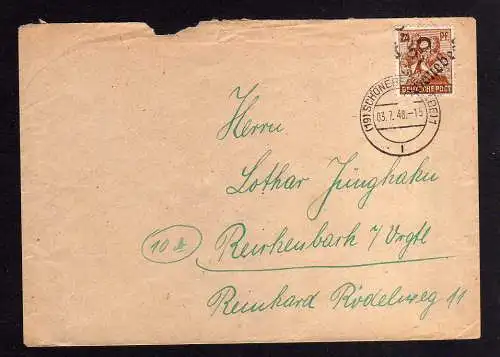 24 PF
DEUTSCHE POST
(19) SCHÖNEB
03.7.48.-15
Herrn
Lothar Junghahn
10b Reichenbach i/Vrgtl
Reinhard Rödelweg 11